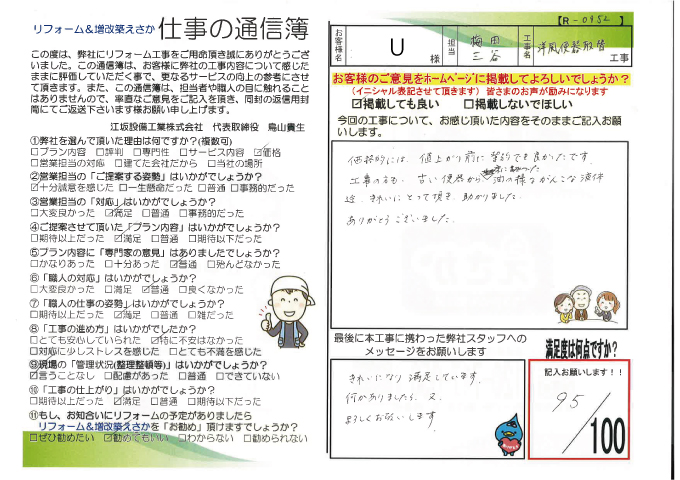 リフォーム＆増改築えさか 仕事の通信簿
この度は、弊社にリフォーム工事をご用命頂き誠にありがとうござ
いました。この通信簿は、お客様に弊社の工事内容について感じた
ままに評価していただく事で、更なるサービスの向上の参考にさせ
て頂きます。また、この通信簿は、担当者や職人の目に触れること
はありませんので、率直なご意見をご記入を頂き、同封の返信用封
筒にてご返送下さいます様お願い申し上げます。
江坂設備工業株式会社 代表取締役 鳥山貴生
①弊社を選んで頂いた理由は何ですか?(複数可)
□プラン内容 □評判 □専門性 □サービス内容 ☑価格
□営業担当の対応 □建てた会社だから □当社の場所
②営業担当の「ご提案する姿勢」はいかがでしょうか?
☑十分誠意を感じた □一生懸命だった □普通 □事務的だった
③営業担当の「対応」はいかがでしょうか?
□大変良かった ☑満足 □普通 □事務的だった
④ご提案させて頂いた「プラン内容」はいかがでしょうか?
□期待以上だった ☑満足 □普通 □期待以下だった
⑤プラン内容に「専門家の意見」はありましたでしょうか?
□かなりあった □十分あった ☑普通 □殆んどなかった
⑥「職人の対応」はいかがでしょうか?
□大変良かった □満足 ☑普通 □良くなかった
⑦「職人の仕事の姿勢」はいかがでしょうか?
□期待以上だった ☑満足 □普通 □雑だった
⑧「工事の進め方」はいかがでしたか?
□とても安心していられた ☑特に不安はなかった
□対応に少しストレスを感じた □とても不満を感じた
⑨現場の「管理状況(整理整頓等)」はいかがでしょうか?
☑言うことなし □配慮があった □普通 □できていない
⑩「工事の仕上がり」はいかがでしょうか?
□期待以上だった ☑満足 □普通 □期待以下だった
⑪もし、お知合いにリフォームの予定がありましたら
リフォーム＆増改築えさかを「お勧め」頂けますでしょうか?
□ぜひ勧めたい ☑勧めてもいい □わからない □勧められない
【R-0952 】
お客様名 U 様 担当 梅田 三谷 工事名 洋風便器取替 工事
お客様のご意見をホームページに掲載してよろしいでしょうか?
(イニシャル表記させて頂きます) 皆さまのお声が励みになります
☑掲載しても良い □掲載しないでほしい
今回の工事について、お感じ頂いた内容をそのままご記入お願
いします。
価格的には、値上がり前に契約でき良かったです。
工事の方も、古い便器から 油の様ながんこな液体
迄、きれいにとって頂き、助かりました。
ありがとうございました。
最後に本工事に携わった弊社スタッフへの
メッセージをお願いします
きれいになり満足しています。
何かありましたら、又、
よろしくお願いします
満足度は何点ですか?
記入お願いします!!
95/100